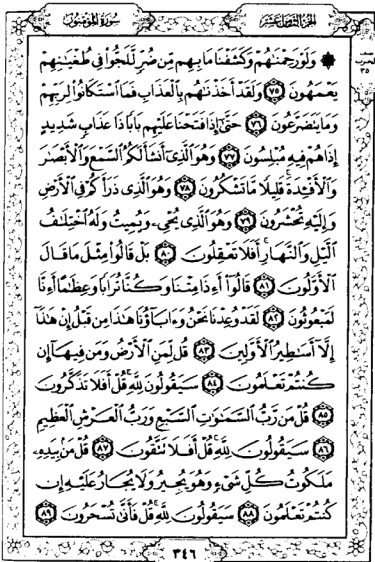 الجزء الثامن عشر
سورة المؤمنون
۞ وَلَوْ رَحِمْنَٰهُمْ وَكَشَفْنَا مَا بِهِم مِّن ضُرٍّ لَّلَجُّوا۟ فِى طُغْيَٰنِهِمْ
يَعْمَهُونَ ٧٥ وَلَقَدْ أَخَذْنَٰهُم بِٱلْعَذَابِ فَمَا ٱسْتَكَانُوا۟ لِرَبِّهِمْ
وَمَا يَتَضَرَّعُونَ ٧٦ حَتَّىٰٓ إِذَا فَتَحْنَا عَلَيْهِم بَابًا ذَا عَذَابٍ شَدِيدٍ
إِذَا هُمْ فِيهِ مُبْلِسُونَ ٧٧ وَهُوَ ٱلَّذِىٓ أَنشَأَ لَكُمُ ٱلسَّمْعَ وَٱلْأَبْصَٰرَ
وَٱلْأَفْـِٔدَةَ ۚ قَلِيلًا مَّا تَشْكُرُونَ ٧٨ وَهُوَ ٱلَّذِى ذَرَأَكُمْ فِى ٱلْأَرْضِ
وَإِلَيْهِ تُحْشَرُونَ ٧٩ وَهُوَ ٱلَّذِى يُحْىِۦ وَيُمِيتُ وَلَهُ ٱخْتِلَٰفُ
ٱلَّيْلِ وَٱلنَّهَارِ ۚ أَفَلَا تَعْقِلُونَ ٨٠ بَلْ قَالُوا۟ مِثْلَ مَا قَالَ
ٱلْأَوَّلُونَ ٨١ قَالُوٓا۟ أَءِذَا مِتْنَا وَكُنَّا تُرَابًا وَعِظَٰمًا أَءِنَّا
لَمَبْعُوثُونَ ٨٢ لَقَدْ وُعِدْنَا نَحْنُ وَءَابَآؤُنَا هَٰذَا مِن قَبْلُ إِنْ هَٰذَآ
إِلَّآ أَسَٰطِيرُ ٱلْأَوَّلِينَ ٨٣ قُل لِّمَنِ ٱلْأَرْضُ وَمَن فِيهَآ إِن
كُنتُمْ تَعْلَمُونَ ٨٤ سَيَقُولُونَ لِلَّهِ ۚ قُلْ أَفَلَا تَذَكَّرُونَ
٨٥ قُلْ مَن رَّبُّ ٱلسَّمَٰوَٰتِ ٱلسَّبْعِ وَرَبُّ ٱلْعَرْشِ ٱلْعَظِيمِ
٨٦ سَيَقُولُونَ لِلَّهِ ۚ قُلْ أَفَلَا تَتَّقُونَ ٨٧ قُلْ مَنۢ بِيَدِهِۦ
مَلَكُوتُ كُلِّ شَىْءٍ وَهُوَ يُجِيرُ وَلَا يُجَارُ عَلَيْهِ إِن
كُنتُمْ تَعْلَمُونَ ٨٨ سَيَقُولُونَ لِلَّهِ ۚ قُلْ فَأَنَّىٰ تُسْحَرُونَ ٨٩
٣٤٦